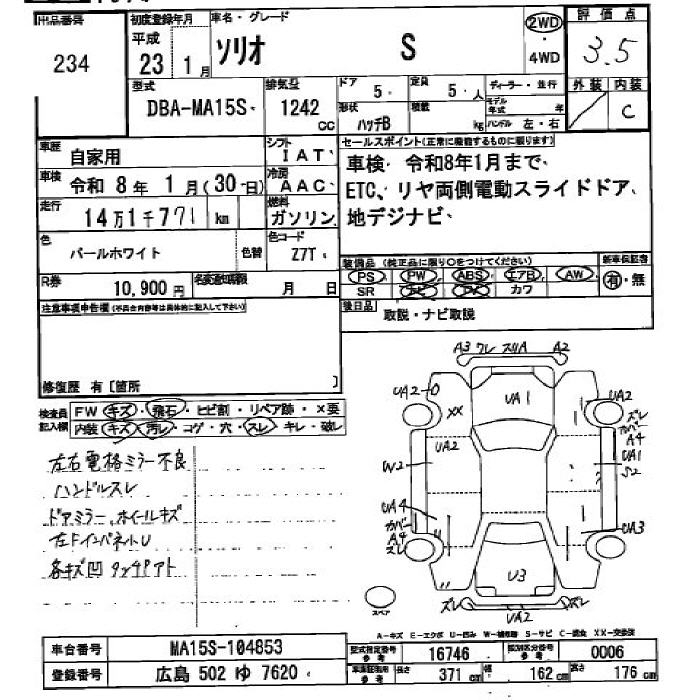 出品番号 初度登録年月 車名・グレード 2WD 評価点
234 平成 23 1月 ソリオ S ・4WD 3.5
型式 排気量 ドア 定員 ディーラー・並行 外装 内装
DBA-MA15S 1242 cc 5 5 人 モデル年式 年 C
形状 ハッチB 積載 kg ハンドル 左・右
車歴 自家用 シフト IAT セールスポイント(正常に機能するものに限ります)
車検 令和 8年 1月(30日) 冷房 AAC 車検 令和8年1月まで、
走行 14万1千771 km 燃料 ガソリン ETC、リヤ両側電動スライドドア、
地デジナビ
色 パールホワイト 色替 色コード Z7T 装備品(純正品に限り○をつけてください) 新車保証書
PS PW ABS エアB AW 有・無
R券 10,900円 名変通知期限 月 日 SR ナビ TV カワ
注意事項申告欄(不具合内容等は具体的に記入して下さい) 後日品 取説・ナビ取説
修復歴 有[箇所 ]
検査員記入欄 FW キズ・飛石・ヒビ割・リペア跡・×要
内装 キズ・汚レ・コゲ・穴・スレ・キレ・破レ
左右電格ミラー不良
ハンドルスレ
ドアミラー、ホイールキズ
左FインパネトU
各キズ凹 タッチアト
A3 ワレ スリA A2
UA2-O UA1 UA2
XX ズレ
UA2 カバー
A4
W2 UA1
S2
UA4 UA3
カバー
A4
ズレ
U3
スペア ズレ UA2 ズレ
A-キズ E-エクボ U-凹み W-補修跡 S-サビ C-腐食 XX-交換済
車台番号 MA15S-104853 型式指定番号 参考 16746 類別区分番号 参考 0006
登録番号 広島 502 ゆ 7620 車庫証明用 参考 長さ 371 cm 幅 162 cm 高さ 176 cm